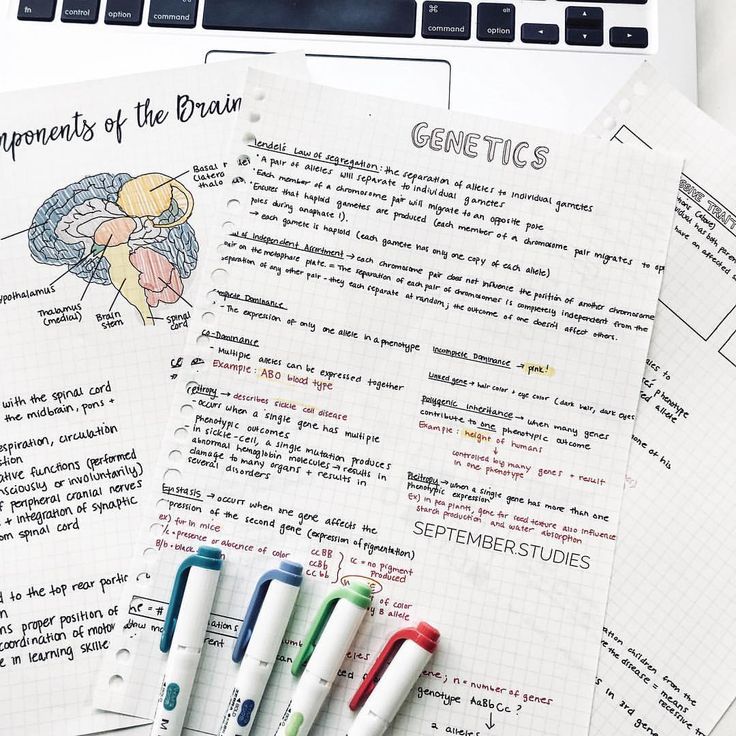 fn
control
option
command
command
alt
option
mponents of the Brain
Basal
thalamus
Hypothalamus
Thalamus
(medial)
Brain
stem
spinal
cord
with the spinal cord
the midbrain, pons +
espiration, circulation
ction
ative functions (performed
nsciously or involuntarily)
f peripheral cranial nerves
+ integration of synaptic
om spinal cord
d to the top rear portic
ns proper position of
coordination of motor
e in learning skille
GENETICS
Mendel's Law of segregation: the separation of alleles to individual gametes
· A pair of alleles will separate to individual gametes
· Each member of a chromosome pair will migrate to an opposite pole
· Ensures that haploid gametes are produced (each member of a chromosome pair migrates to op
poles during anaphase 1).
→ each gamete is haploid (each gamete has only one copy of each allele)
of Independent Assortment → each chromosome pair does not influence the position of another chromosome
pair on the metaphase plate. = The separation of each pair of chromosomes is completely independent from the
separation of any other pair - they each separate at random; the outcome of one doesn't affect others.
mplete Dominance
- The expression of only one allele in a phenotype
co-Dominance
- Multiple alleles can be expressed together
Example: ABO blood type
Pleitropy → describes sickle cell disease
- occurs when a single gene has multiple
phenotypic outcomes
in sickle-cell, a single mutation produces
abnormal hemoglobin molecules → results in
damage to many organs + results in
several disorders
Incomplete Dominance → pink!
Linked gene → hair color + eye color (dark hair, dark eyes
polygenic inheritance → when many genes
contribute to one phenotypic outcome
Example: height of humans
↓
controlled by many genes + result
in one phenotype
Pleitropy → when a single gene has more than one
phenotypic expression
Ex) in pea plants, gene for seed texture also influence
starch production and water absorption
SEPTEMBER.STUDIES
Epistasis → occurs when one gene affects the
expression of the second gene (expression of pigmentation)
ex) fur in mice
C/c = presence or absence of color
B/b = black
ccBB
ccBb
cc bb
cc = no pigment
produced
of color
by B allele
ene = #
How ma
ations
rent
number
alleles
gene; n = number of genes
genotype AaBbCc?
↓
2 alleles
SSIVE TRAIT
has both paren
have an affected
s to
's phenotype
ted allele
one of his
ation children from the
re the disease = means
recessive tra
s in 3rd gene